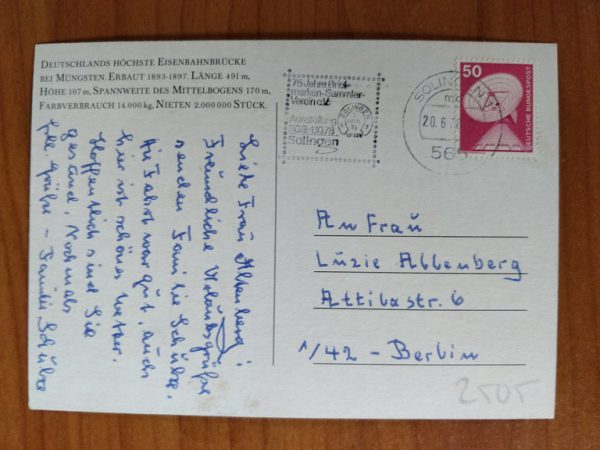 DEUTSCHLANDS HÖCHSTE EISENBAHNBRÜCKE
BEI MÜNGSTEN. ERBAUT 1893-1897. LÄNGE 491 m,
HÖHE 107 m, SPANNWEITE DES MITTELBOGENS 170 m,
FARBVERBRAUCH 14.000 kg, NIETEN 2.000 000 STÜCK.
Liebe Frau Altenberg!
Freundliche Urlaubsgrüße
senden Familie Schübe,
die Fahrt war gut, auch
hier ist schönes Wetter.
Hoffentlich sind Sie
gesund, Nochmals
Grüße - Familie Schübe
75 Jahre Brief-
marken-Sammler-
Verein e.V.
Ausstellung
30.9.-1.10.78
Solingen
SOLINGEN
20.6.
565
50
DEUTSCHE BUNDESPOST
An Frau
Luzie Altenberg
Attilastr. 6
1/42 - Berlin
2505